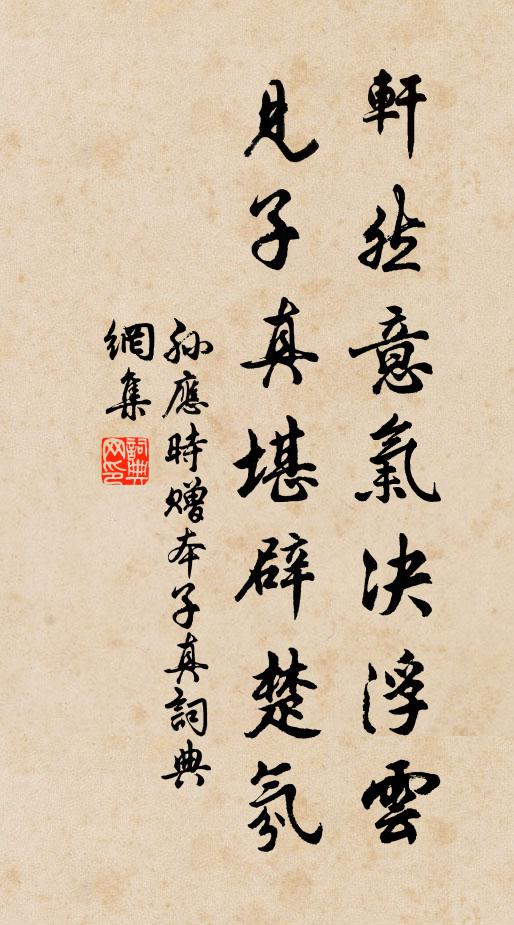 軒然意氣決浮雲
見子真堪辟楚氛
孫應時贈本子真詞典
網集
詞典網印